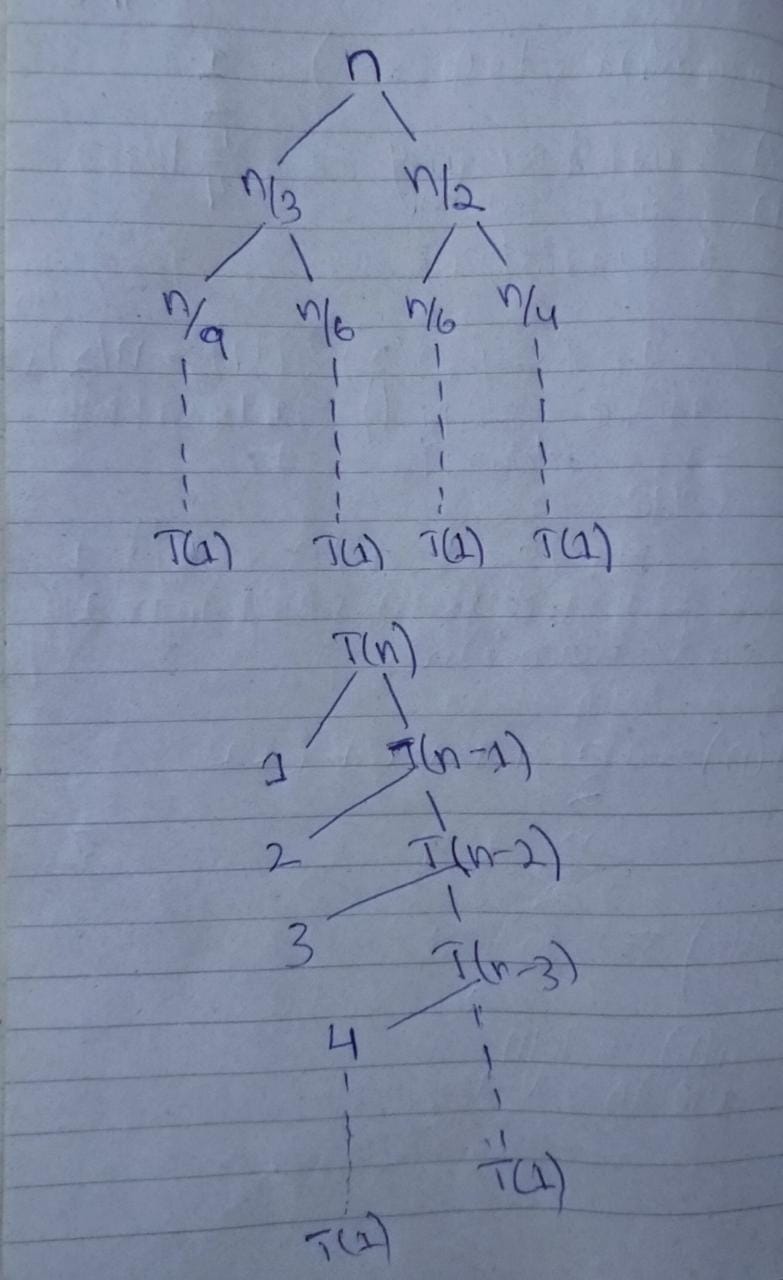 n
n/3 n/2
n/9 n/6 n/6 n/4
T(1) T(1) T(1) T(1)
T(n)
1 T(n-1)
2 T(n-2)
3 T(n-3)
4
T(1)
T(1)